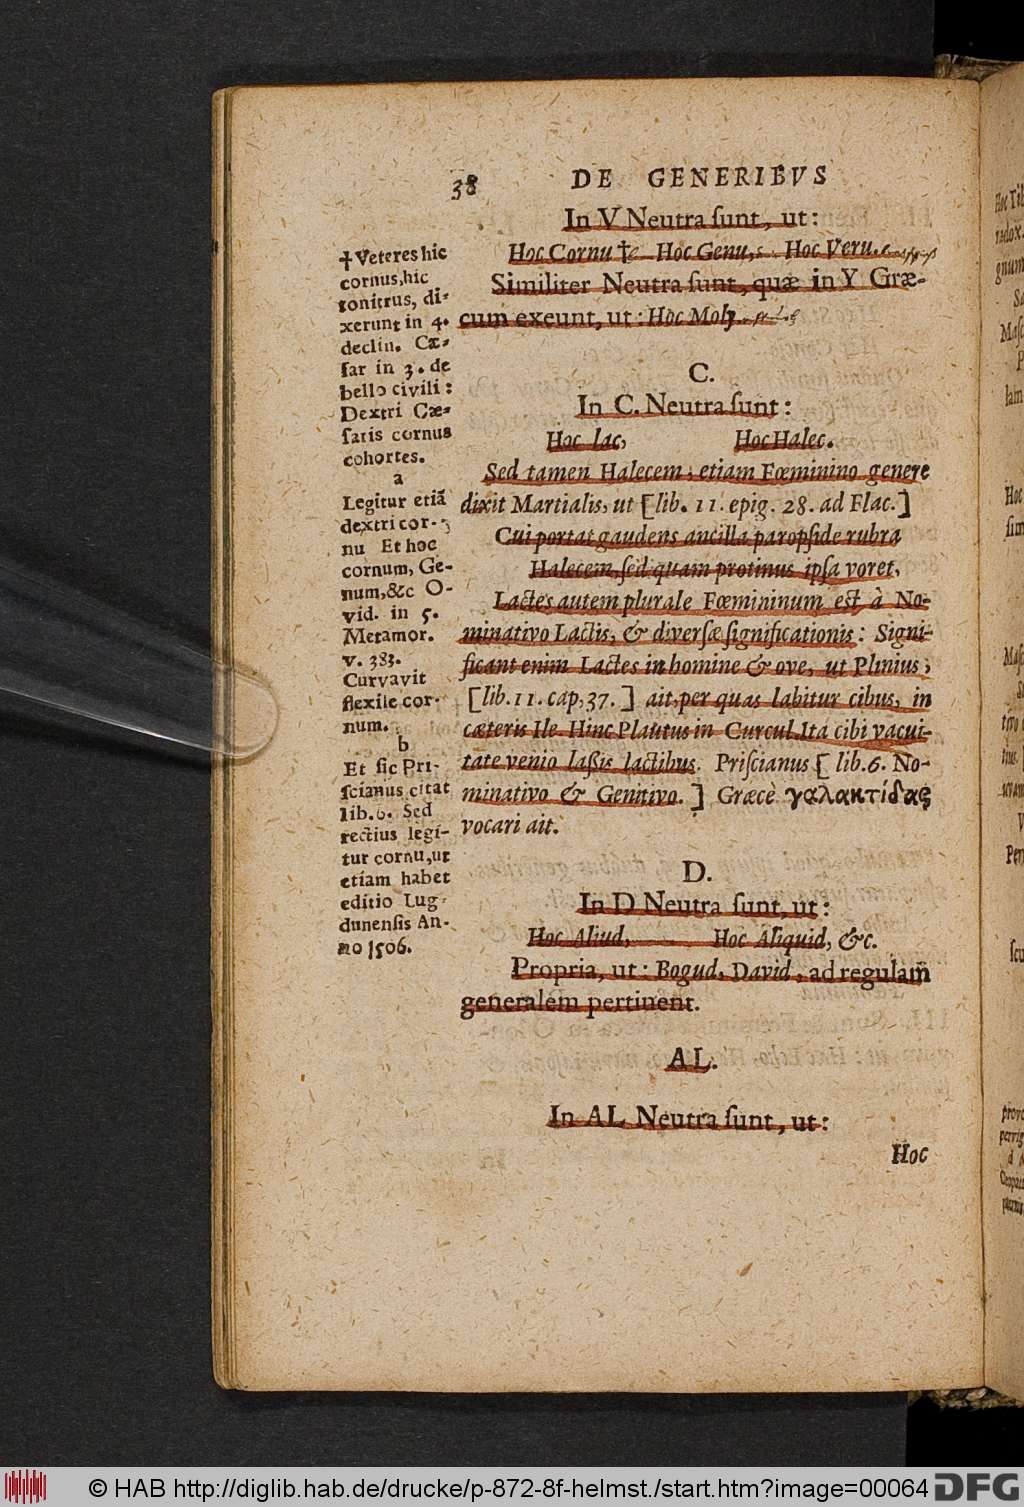 38 DE GENERIBVS
In V Neutra ſunt, ut:
Hoc Cornu † Hoc Genu, Hoc Veru.
Similiter Neutra ſunt, quæ in Y Græ-
cum exeunt, ut: Hoc Moly.
C.
In C. Neutra ſunt:
Hoc lac, Hoc Halec.
Sed tamen Halecem, etiam Fœminino genere
dixit Martialis, ut [lib. 11. epig. 28. ad Flac.]
Cui portat gaudens ancilla paropſide rubra
Halecem, ſed quam protinus ipſa voret,
Lactes autem plurale Fœmininum est à No-
minativo Lactis, & diverſæ ſignificationis: Signi-
ficant enim Lactes in homine & ove, ut Plinius,
[lib. 11. cap, 37. ] ait, per quas labitur cibus, in
cæteris Ile. Hinc Plautus in Curcul. Ita cibi vacui-
tate venio laßis lactibus. Priſcianus [ lib. 6. No-
minativo & Genitivo. ] Græcè γαλακτίδας
vocari ait.
D.
In D Neutra ſunt, ut:
Hoc Aliud, Hoc Aliquid, &c.
Propria, ut: Bogud, David, ad regulam
generalem pertinent.
AL.
In AL Neutra ſunt, ut:
Hoc
† Veteres hic
cornus, hic
tonitrus, di-
xerunt in 4.
declin. Cæ-
ſar in 3. de
bello civili:
Dextri Cæ-
ſaris cornus
cohortes.
a
Legitur etiā
dextri cor-
nu Et hoc
cornum, Ge-
num, &c O-
vid. in 5.
Metamor.
v. 383.
Curvavit
flexile cor-
num.
b
Et ſic Pri-
ſcianus citat
lib. 6. Sed
rectius legi-
tur cornu, ut
etiam habet
editio Lug-
dunenſis An-
no 1506.
© HAB http://diglib.hab.de/drucke/p-872-8f-helmst./start.htm?image=00064 DFG